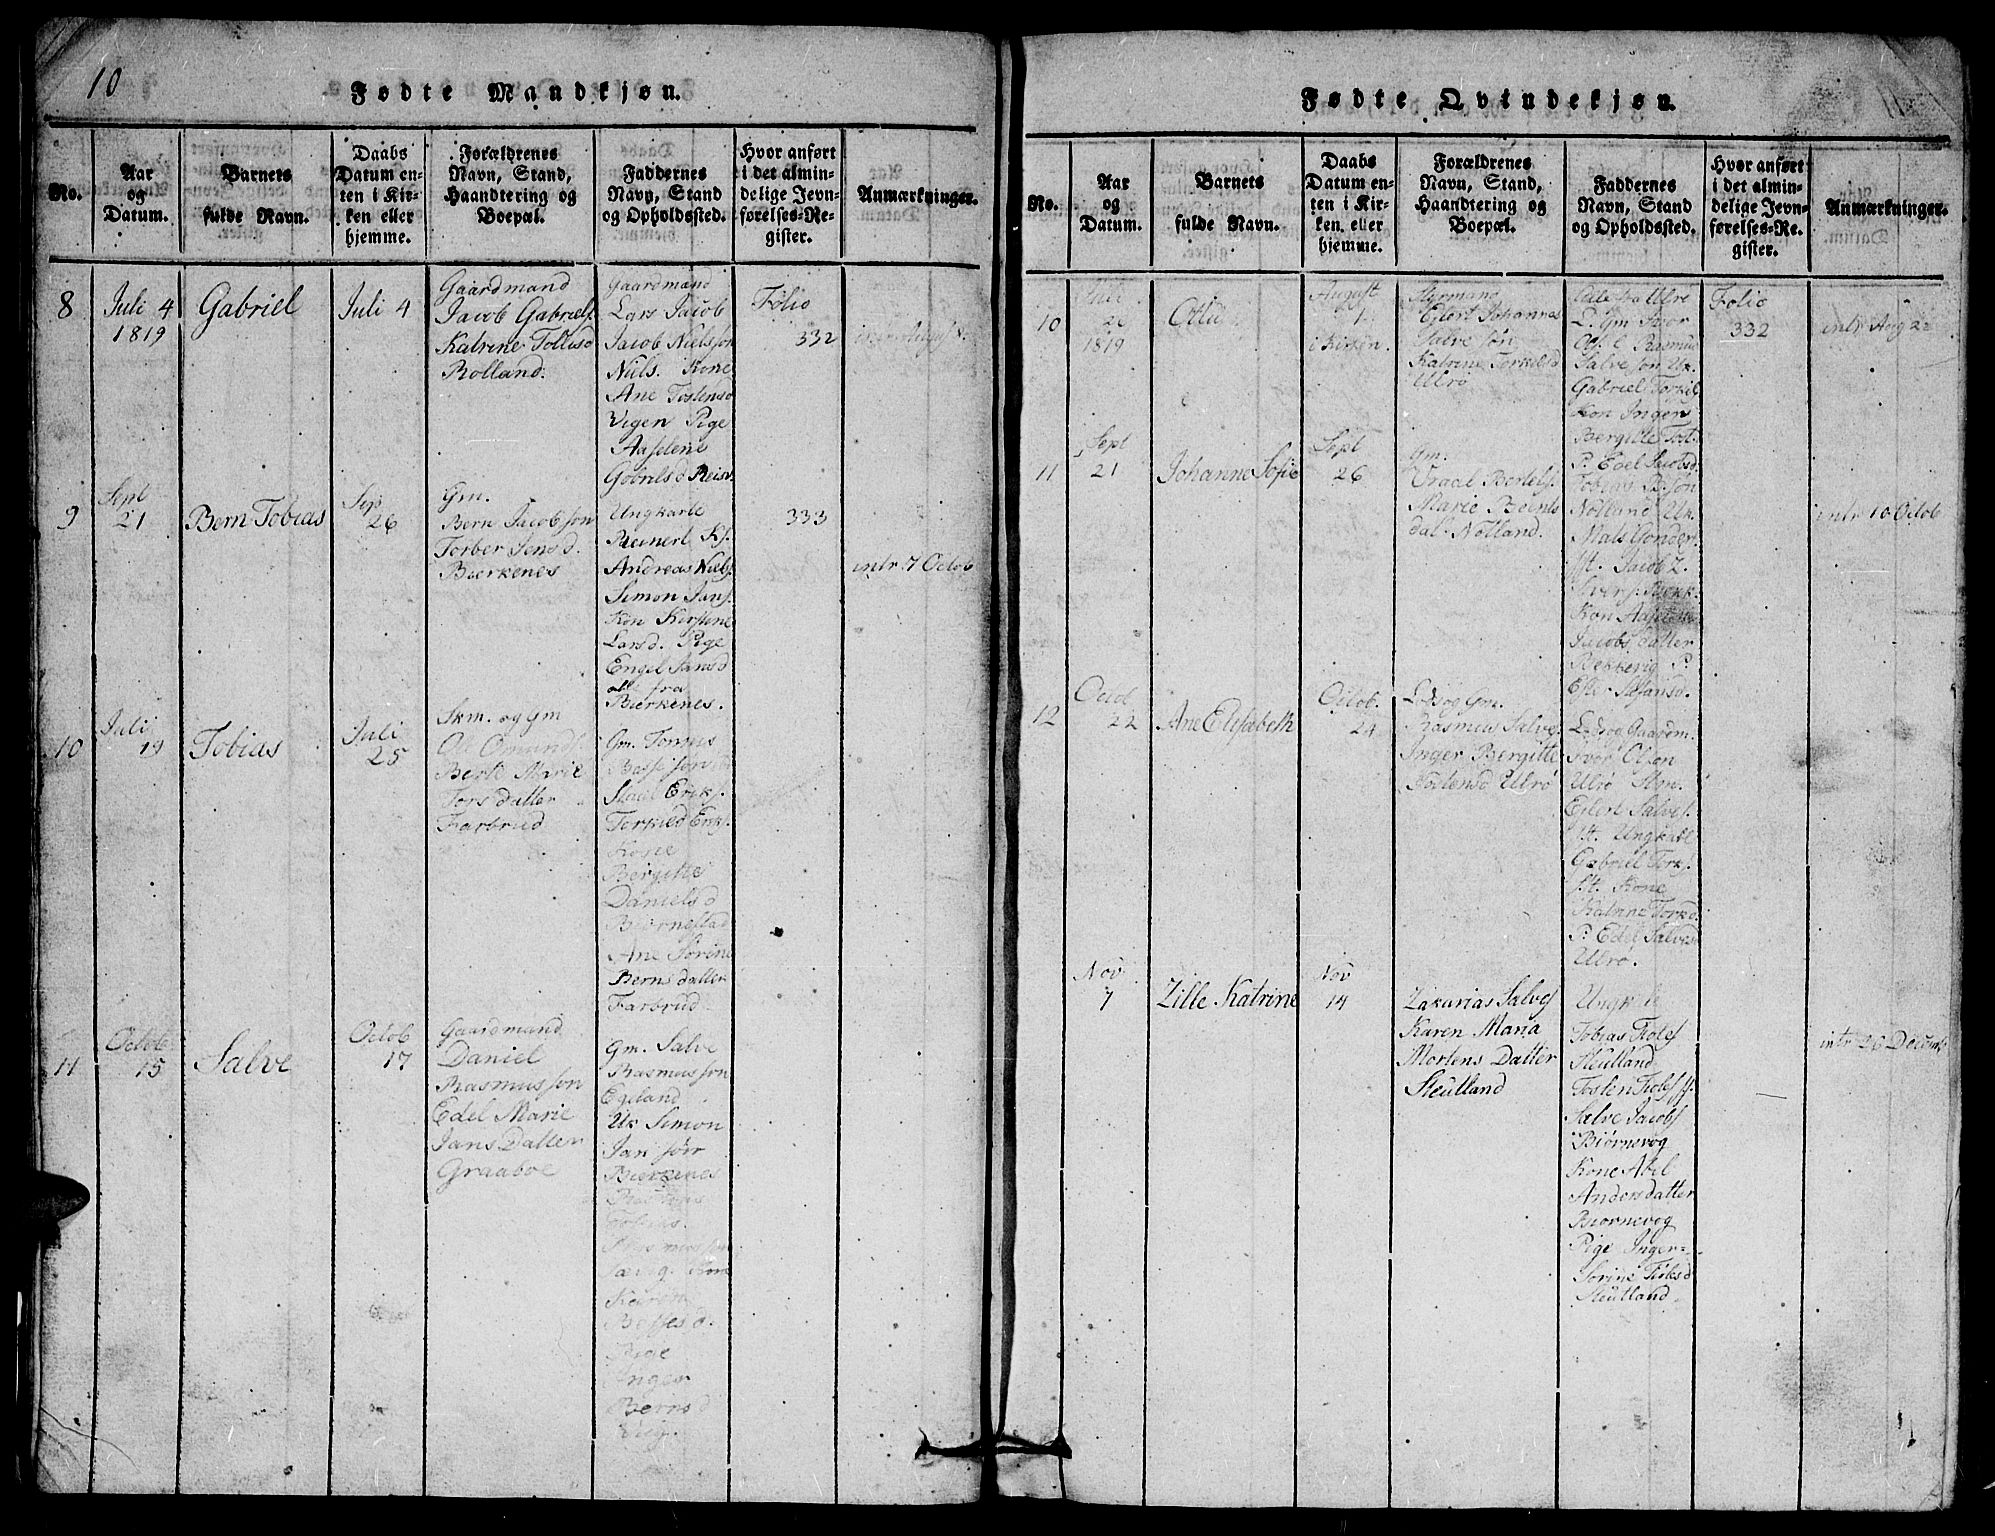 10
Fødte Mandkjøn.
No.
Aar
og
Datum.
Barnets
fulde Navn.
Daabs
Datum en-
ten i Kir-
ken eller
hjemme.
Forældrenes
Navn, Stand,
Haandtering og
Boepæl.
Faddernes
Navn, Stand
og Opholdssted.
Hvor anført
i det almin-
delige Jevn-
førelses-Re-
gister.
Anmærkninger.
8
Juli 4
1819
Gabriel
Juli 4
Gaardmand
Jacob Gabriels.
Katrine Tollisd
Rolland.
Gaardmand
Lars Jacob
Jacob Nielsson
Niels. Kone
Ane Tostensd
Vigen Pige
Aaselene
Gobrilsd Reisv
Folio
332
9
Sept
21
Bern Tobias
Sep
26
Gm.
Bern Jacobsson
Torber Jensd.
Bierkenes
Ungkarle
Reinert Ks.
Andreas Niels.
Simon Jans.
Kon Kirstine
Larsd. Pige
Engel Jansd
alle fra
Bierkenes.
333
intr 7 Octob
10
Juli
19
Tobias
Juli
25
Skm. og Gm
Ole Omunds.
Berte Marie
Tors datter
Farbrud
Gm. Tomas
Basse søn
Staul Eriks.
Torkild Erks.
Kone
Bergitte
Daniels d
Biørnestad
Ane Sørine
Berns datter
Farbrud
11
Octob
15
Salve
Octob
17
Gaardmand
Daniel
Rasmusson
Edel Marie
Jans Datter
Graaboe
Gm. Salve
Rasmusson
Egeland
Uk Simon
Jan søn
Bierkenes
Tobias
Rasmussøn
Kon
Karen
Bessesd.
Pige
Inger
Berns d
Fødte Qvindekjøn.
No.
Aar
og
Datum.
Barnets
fulde Navn.
Daabs
Datum en-
ten i Kir-
ken eller
hjemme.
Forældrenes
Navn, Stand,
Haandtering og
Boepæl.
Faddernes
Navn, Stand
og Opholdssted.
Hvor anført
i det almin-
delige Jevn-
førelses-Re-
gister.
Anmærkninger.
10
Juli
26
1819
Otlid
August
1.
i Kirken
Styrmand
Eilert Johannes
Salve søn
Katrine Torkelsd
Ulrø
Ole fra Ulrø
L. Gm Ivor
Ols. L Rasmus
Salve søn Uk.
Gabriel Torkil
Kon Inger
Bergitte Tost.
P. Edel Jacobsd.
Folio
332
intr Aug 22
11
Sept
21
Johanne Sofie
Sept
26
Gm.
Vraal Bertels.
Marie Bernts
dal. Notland.
Tobias B.søn
Notland Uk.
Mals Gonder.
st. Jacob Z.
Siver s. Rekk.
Kon Aaselene
Jacobs datter
Rekkevig P.
Ester Stefansd.
intr 10 Octob
12
Octob
22
Ane Elisabeth
Octob.
24
Lods og Gm.
Rasmus Salves
Inger Bergitte
Tostensd Ulrø
Lods og Gaardm.
Ivor Olsen
Ulrø Stm.
Eilert Salves.
st. Ungkarl
Gabriel Tork s.
st. Kone
Katrine Torkd.
P. Edel Salvesd
Ulrø.
Nov
7
Zille Katrine
Nov
14
Zakarias Salves
Karen Maria
Mortens Datter
Steutland
Ungk
Tobias Tioles
Steutland
Tosten Tioles st.
Salve Jacobs
Biørnevog
Kone Abil
Andersdatter
Biørnevog
Pige Inger
Sørine Tiolesd
Steutland.
intr 26 Decemb